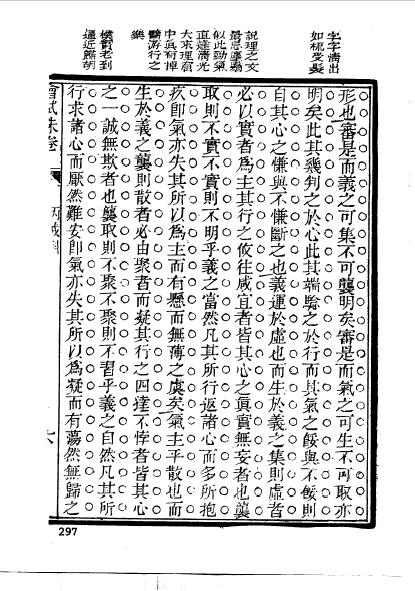 字字清出
如梳受髮
說理之文
最忌塵腐
似此勁氣
直達清光
大來理窟
中具有掉
臂游行之
樂
樸實老到
逼近歸胡
形也審是而義之可集不可襲明矣審是而氣之可生不可取亦
明矣此其幾判之於心此其端驗之於行而其氣之餒與不餒則
自其心之慊與不慊斷之也義運於虛也而生於義之集則虛者
必以實者爲主其行之攸往咸宜者皆其心之眞實無妄者也襲
取則不實不實則不明乎義之當然凡其所行返諸心而多所抱
疚卽氣亦失其所以爲主而有懸而無薄之虞矣氣主乎散也而
生於義之襲則散者必由聚者而凝其行之四達不悖者皆其心
之一誠無欺者也襲取則不聚不聚則不習乎義之自然凡其所
行求諸心而厭然難安卽氣亦失其所以爲凝而有蕩然無歸之
會試硃卷
丙戌科
297